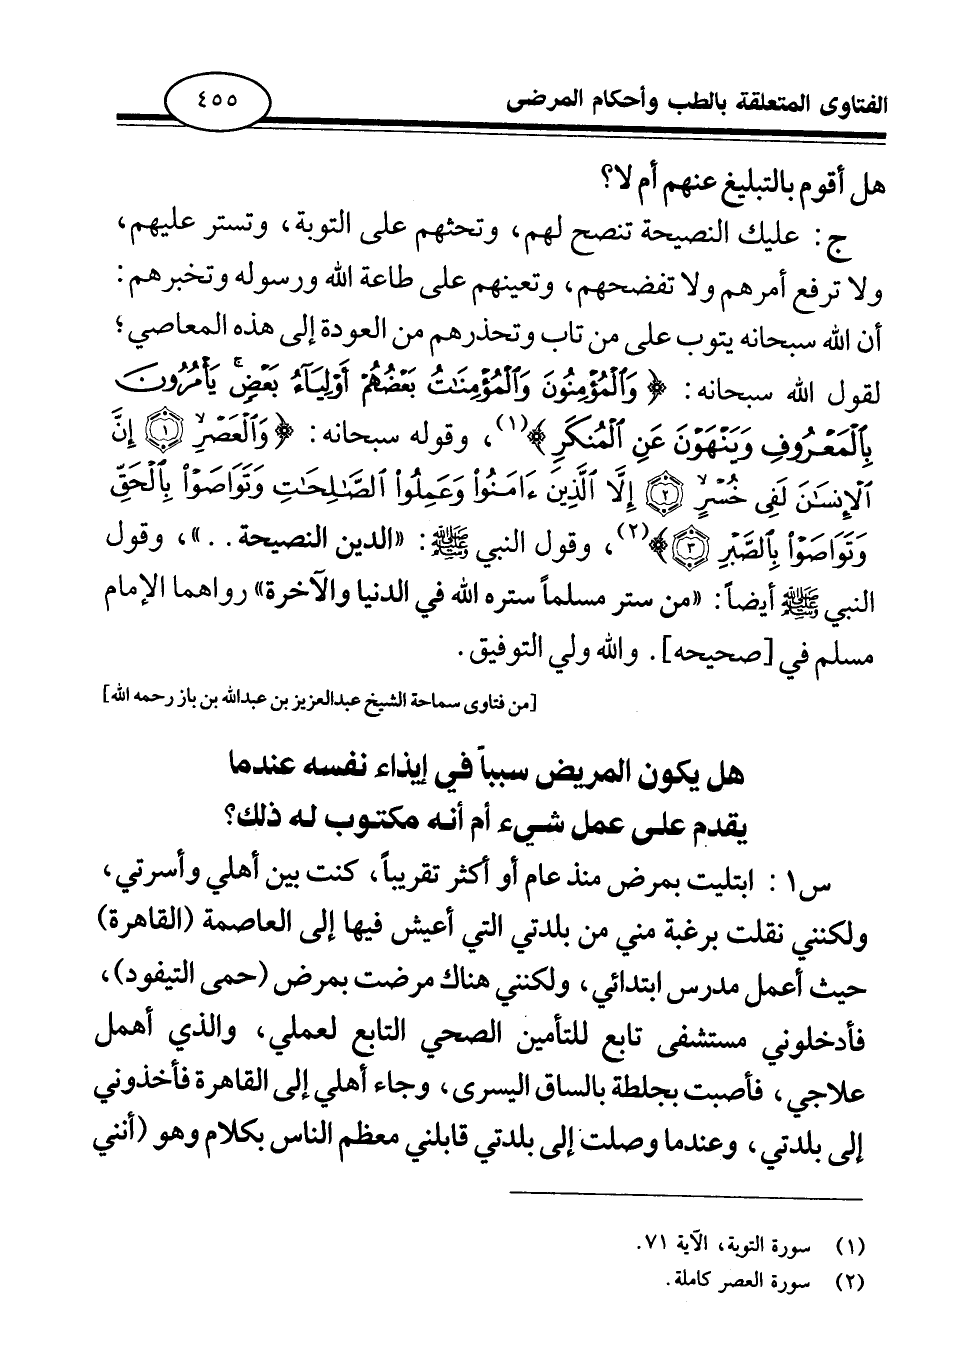 الفتاوى المتعلقة بالطب وأحكام المرضى ٤٥٥
هل أقوم بالتبليغ عنهم أم لا؟
ج: عليك النصيحة تنصح لهم، وتحثهم على التوبة، وتستر عليهم،
ولا ترفع أمرهم ولا تفضحهم، وتعينهم على طاعة الله ورسوله وتخبرهم:
أن الله سبحانه يتوب على من تاب وتحذرهم من العودة إلى هذه المعاصي؛
لقول الله سبحانه: ﴿ وَٱلْمُؤْمِنُونَ وَٱلْمُؤْمِنَٰتُ بَعْضُهُمْ أَوْلِيَآءُ بَعْضٍۚ يَأْمُرُونَ
بِٱلْمَعْرُوفِ وَيَنْهَوْنَ عَنِ ٱلْمُنكَرِ ﴾(١)، وقوله سبحانه: ﴿ وَٱلْعَصْرِۙ ۝١ إِنَّ
ٱلْإِنسَٰنَ لَفِى خُسْرٍۙ ۝٢ إِلَّا ٱلَّذِينَ ءَامَنُوا۟ وَعَمِلُوا۟ ٱلصَّٰلِحَٰتِ وَتَوَاصَوْا۟ بِٱلْحَقِّ
وَتَوَاصَوْا۟ بِٱلصَّبْرِ ۝٣﴾(٢)، وقول النبي ﷺ: «الدين النصيحة..»، وقول
النبي ﷺ أيضاً: «من ستر مسلماً ستره الله في الدنيا والآخرة» رواهما الإمام
مسلم في [صحيحه]. والله ولي التوفيق.
[من فتاوى سماحة الشيخ عبدالعزيز بن عبدالله بن باز رحمه الله]
هل يكون المريض سبباً في إيذاء نفسه عندما
يقدم على عمل شيء أم أنه مكتوب له ذلك؟
س١: ابتليت بمرض منذ عام أو أكثر تقريباً، كنت بين أهلي وأسرتي،
ولكنني نقلت برغبة مني من بلدتي التي أعيش فيها إلى العاصمة (القاهرة)
حيث أعمل مدرس ابتدائي، ولكنني هناك مرضت بمرض (حمى التيفود)،
فأدخلوني مستشفى تابع للتأمين الصحي التابع لعملي، والذي أهمل
علاجي، فأصبت بجلطة بالساق اليسرى، وجاء أهلي إلى القاهرة فأخذوني
إلى بلدتي، وعندما وصلت إلى بلدتي قابلني معظم الناس بكلام وهو (أنني
(١) سورة التوبة، الآية ٧١.
(٢) سورة العصر كاملة.